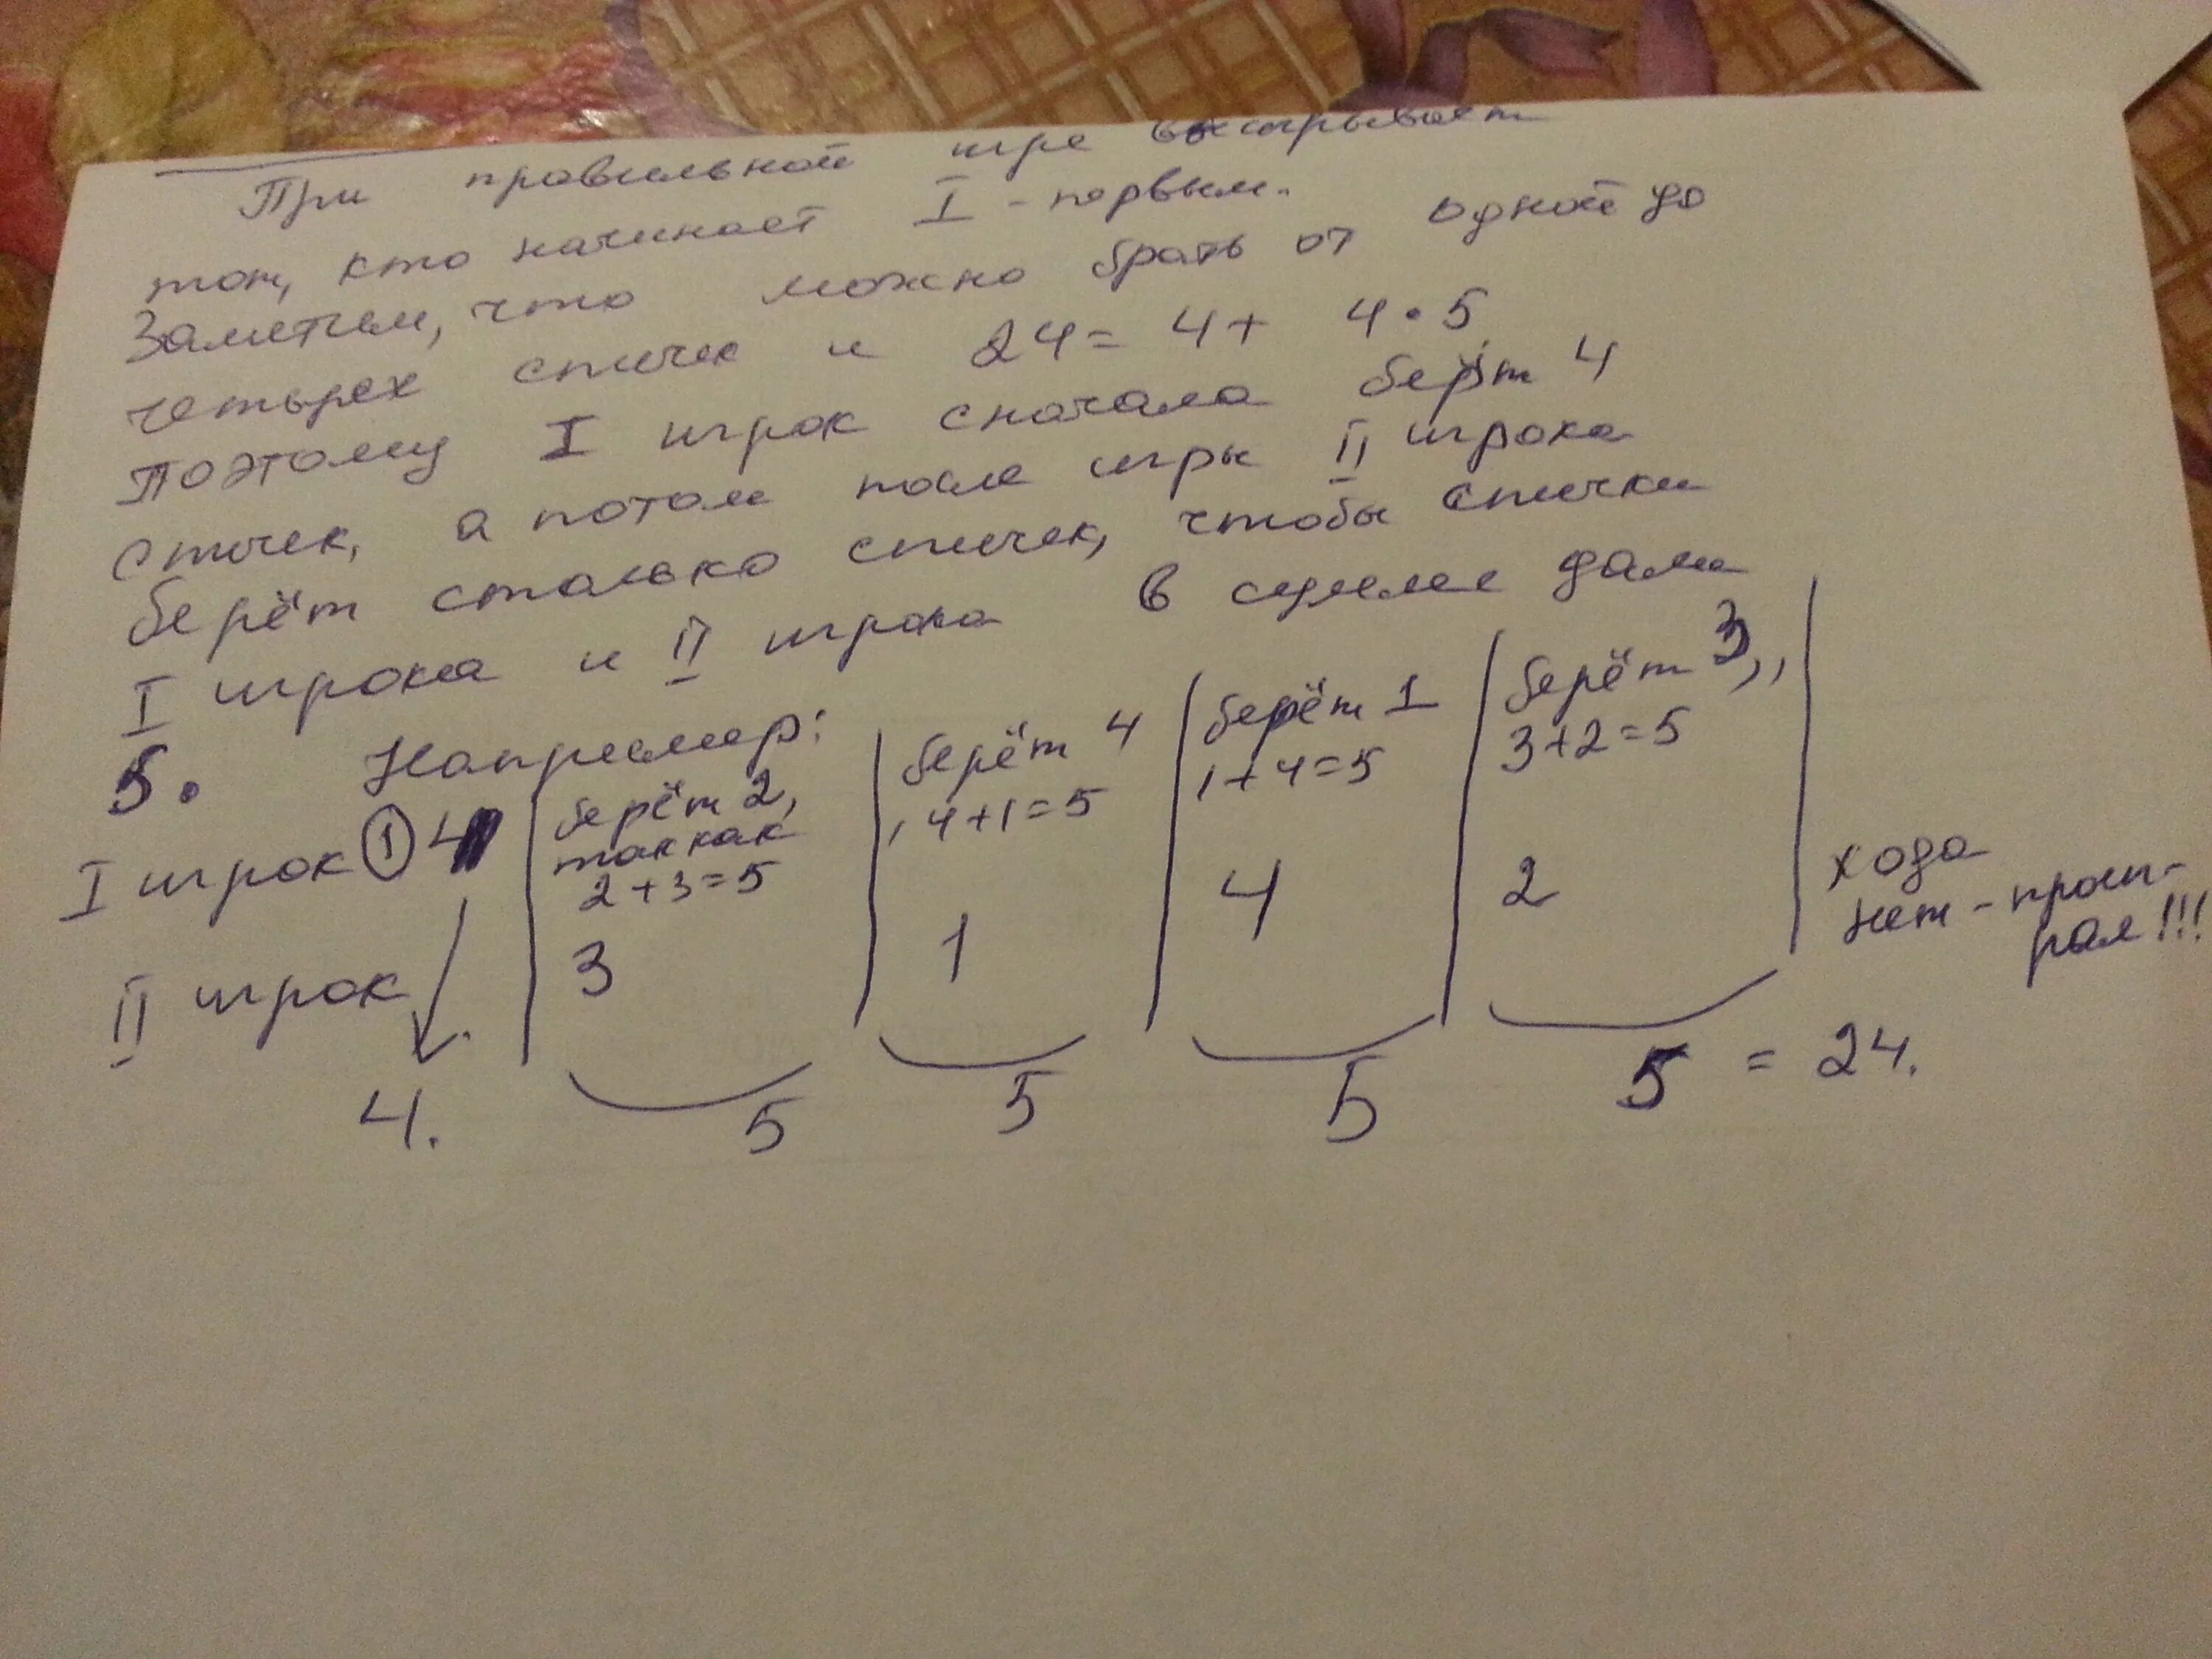 При правильной игре выигрывает
тот, кто начинает I - первым.
Заметим, что можно брать от одной до
четырех спичек и 24 = 4 + 4 • 5,
поэтому I игрок сначала берёт 4
спичек, а потом после игры II игрока
берёт столько спичек, чтобы спички
I игрока и II игрока в сумме дали
5. Например:
I игрок ① 4 | берёт 2, так как 2+3=5 | берёт 4, 4+1=5 | берёт 1, 1+4=5 | берёт 3, 3+2=5 |
II игрок | 3 | 1 | 4 | 2 | хода нет - проиграл!!!
4. 5 5 5 5 = 24.